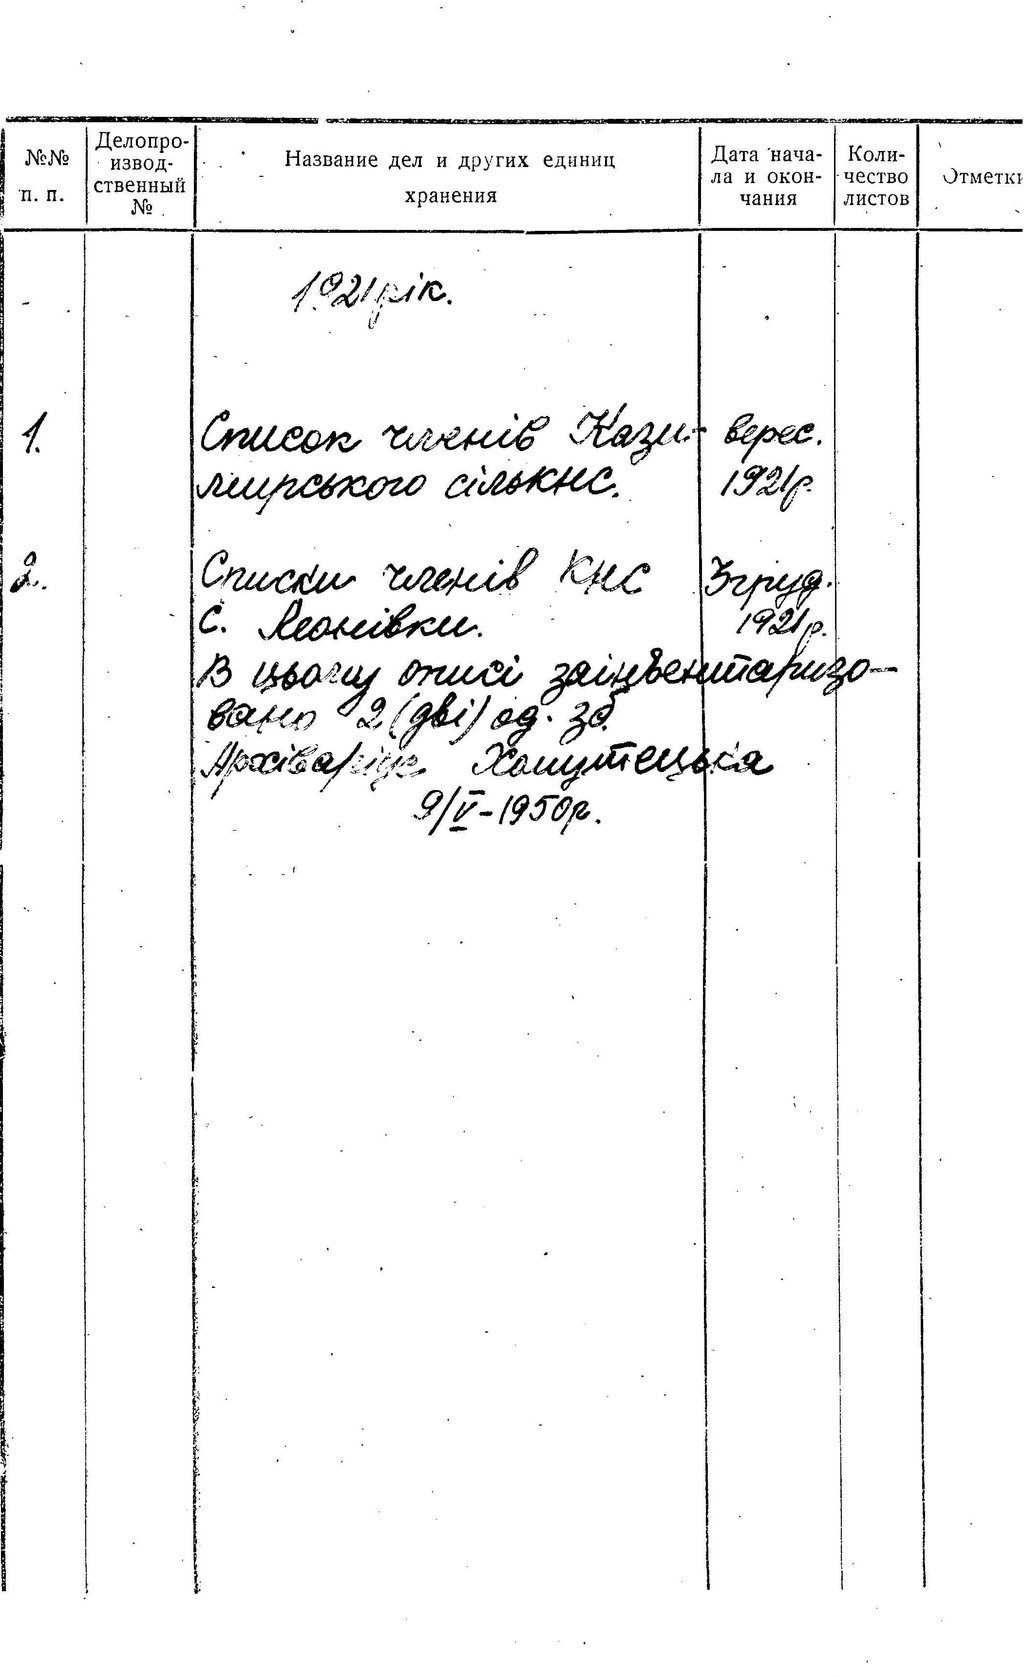 №№ п. п.
Делопро-
извод-
ственный
№
Название дел и других единиц
хранения
Дата нача-
ла и окон-
чания
Коли-
чество
листов
Отметки
1921 рік.
1. Список членів Кази- верес.
мирського сількнс. 1921р.
2. Списки членів КНС 3 груд.
с. Леонівки. 1921р.
В цьому описі заінвентаризо-
вано 2 (дві) од. зб.
Архіваріус Хомутецька
9/V-1950р.